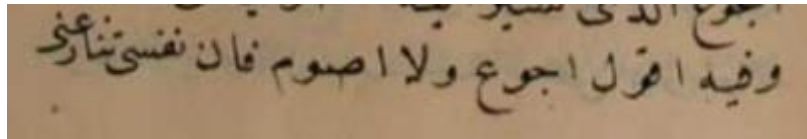 اجوع الذى
وفيه اقول اجوع ولا اصوم فان نفسى تنازعنى